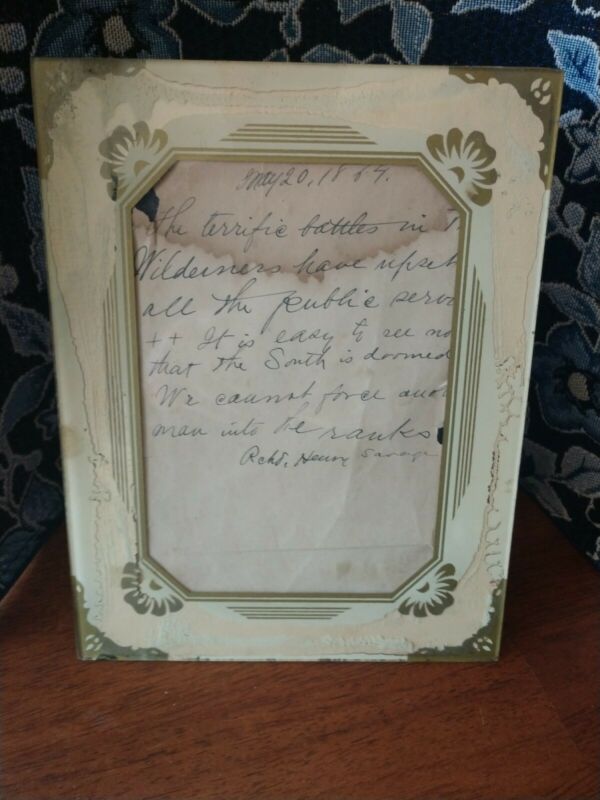 May 20, 1864.
The terrific battles in T
Wilderness have upset
all the public serv
++ It is easy to see no
that the South is doomed
We cannot force ano
man into the ranks
Richd. Henry Savage